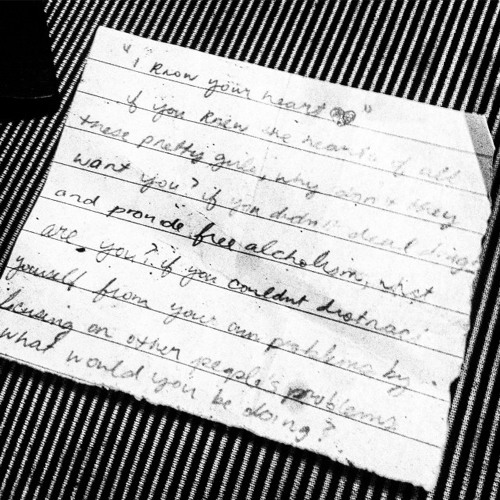 "I know your heart"
if you knew the hearts of all
these pretty girls, why don't they
want you? if you didn't deal drugs
and provide free alcholism, what
are you? if you couldnt distract
yourself from your own problems by
focusing on other people's problems
what would you be doing?